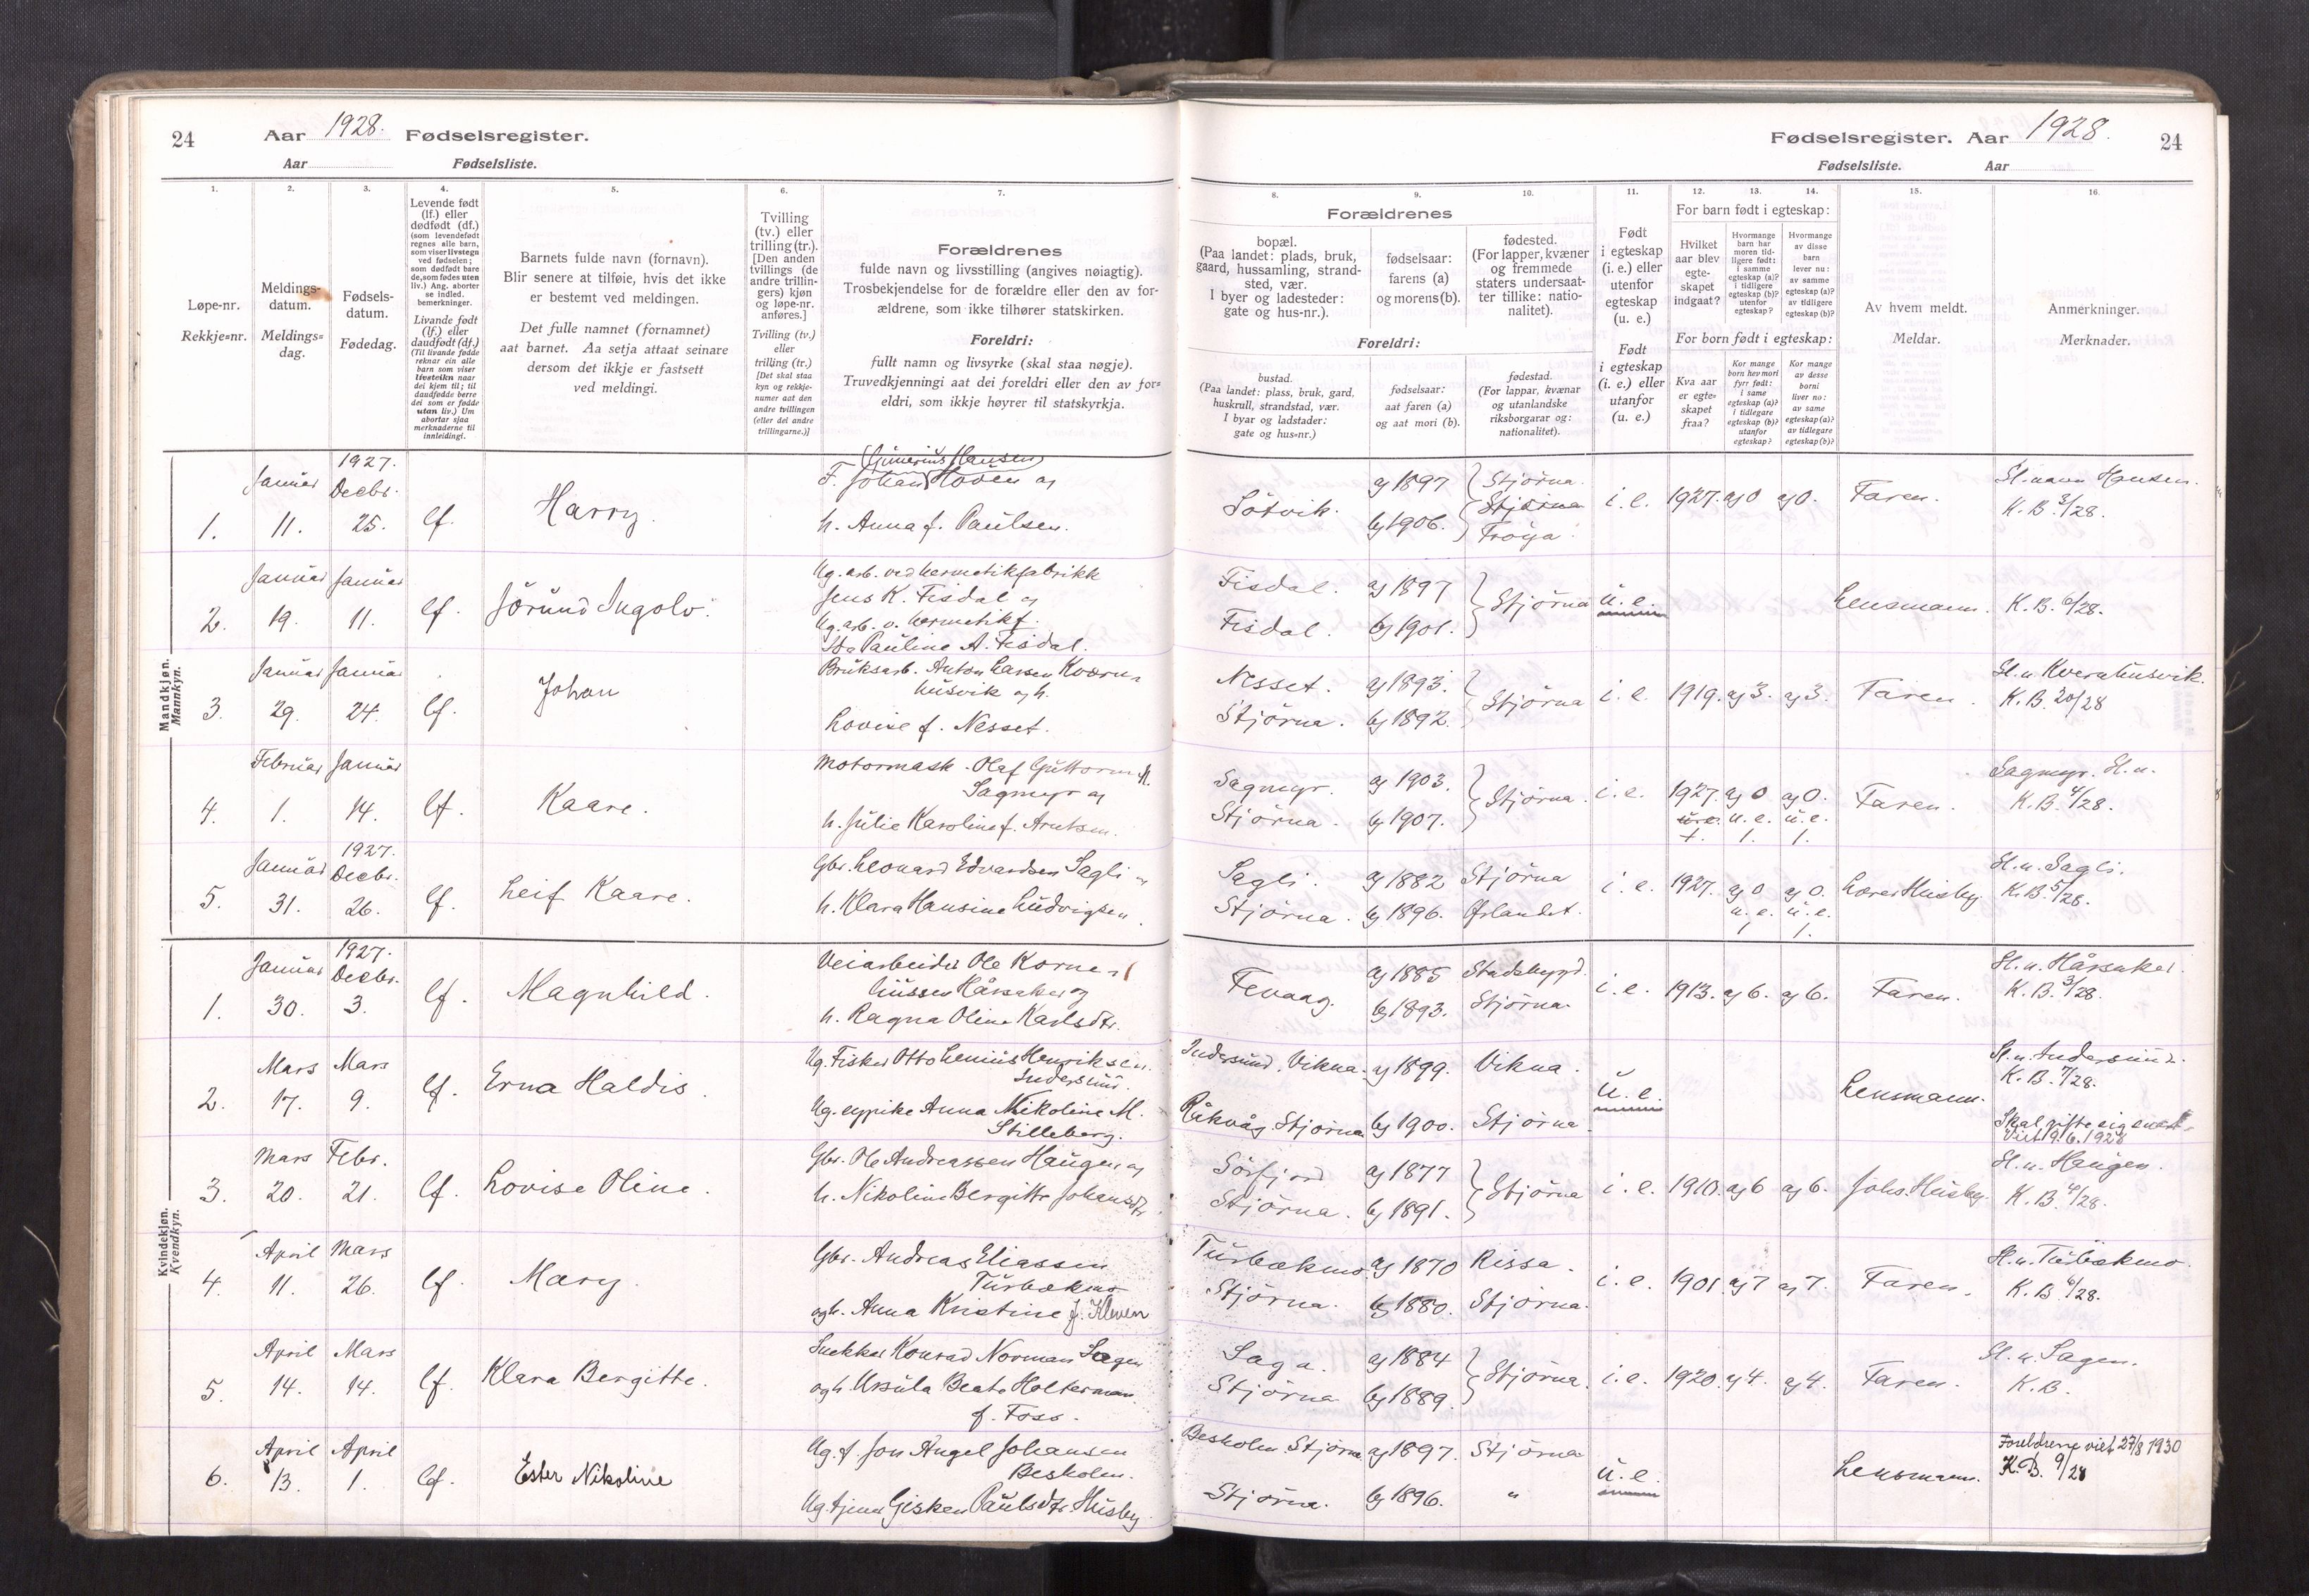 24
Aar 1928. Fødselsregister.
Aar Fødselsliste.
Fødselsregister. Aar 1928.
24
Fødselsliste. Aar
1.
2.
3.
4.
5.
6.
7.
Løpe-nr.
Rekkje=nr.
Meldings-
datum.
Meldings=
dag.
Fødsels-
datum.
Fødedag.
Levende født
(lf.) eller
dødfødt (df.)
(som levendefødt
regnes alle barn,
som viser livstegn
ved fødselen;
som dødfødt bare
de, som fødes uten
liv.) Ang. aborter
se indled.
bemerkninger.
Livande født
(lf.) eller
daudfødt (df.)
(Til livande fødde
reknar ein alle
barn som viser
livsteikn naar
dei kjem til; til
daudfødde berre
dei som er fødde
utan liv.) Um
abortar sjaa
merknaderne til
innleidingi.
Barnets fulde navn (fornavn).
Blir senere at tilføie, hvis det ikke
er bestemt ved meldingen.
Det fulle namnet (fornamnet)
aat barnet. Aa setja attaat seinare
dersom det ikkje er fastsett
ved meldingi.
Tvilling
(tv.) eller
trilling (tr.).
[Den anden
tvillings (de
andre trillin-
gers) kjøn
og løpe-nr.
anføres.]
Tvilling (tv.)
eller
trilling (tr.)
[Det skal staa
kyn og rekkje-
numer aat den
andre tvillingen
(eller dei andre
trillingarne.)]
Forældrenes
fulde navn og livsstilling (angives nøiagtig).
Trosbekjendelse for de forældre eller den av for-
ældrene, som ikke tilhører statskirken.
Foreldri:
fullt namn og livsyrke (skal staa nøgje).
Truvedkjenningi aat dei foreldri eller den av for=
eldri, som ikkje høyrer til statskyrkja.
8.
9.
10.
11.
12.
13.
14.
15.
16.
Forældrenes
bopæl.
(Paa landet: plads, bruk,
gaard, hussamling, strand-
sted, vær.
I byer og ladesteder:
gate og hus-nr.).
fødselsaar:
farens (a)
og morens (b).
fødested.
(For lapper, kvæner
og fremmede
staters undersaat-
ter tillike: natio-
nalitet).
Foreldri:
bustad.
(Paa landet: plass, bruk, gard,
huskrull, strandstad, vær.
I byar og ladstader:
gate og hus=nr.)
fødselsaar:
aat faren (a)
og aat mori (b).
fødestad.
(For lappar, kvænar
og utanlandske
riksborgarar og:
nationalitet).
Født
i egteskap
(i. e.) eller
utenfor
egteskap
(u. e.)
Født
i egteskap
(i. e.) eller
utanfor
(u. e.)
For barn født i egteskap:
Hvilket
aar blev
egte-
skapet
indgaat?
Hvormange
barn har
moren tid-
ligere født:
i samme
egteskap (a)?
i tidligere
egteskap (b)?
utenfor
egteskap?
Hvormange
av disse
barn
lever nu:
av samme
egteskap (a)?
av tidligere
egteskap (b)?
For born født i egteskap:
Kva aar
er egte=
skapet
fraa?
Kor mange
born hev mori
fyrr født:
i same
egteskap (a)?
i tidlegare
egteskap (b)?
utanfor
egteskap?
Kor mange
av desse
borni
liver no:
av same
egteskap (a)?
av tidlegare
egteskap (b)?
Av hvem meldt.
Meldar.
Anmerkninger.
Merknader.
Mandkjøn.
Mannkyn.
1. Januar 11. 1927. Decbr. 25. lf. Harry.
(Gunerius Hansen)
F. Johan Hoven og
h. Anna f. Paulsen.
Søtvik. a) 1897 b) 1906. Stjørna. Stjørna Frøya. i. e. 1927. a) 0 a) 0. Faren.
Sl. navn Hansen.
K. B. 3/28.
2. Januar 19. Januar 11. lf. Jørund Ingolv.
Ug. arb. ved hermetikfabrikk
Jens K. Fisdal og
Ug. arb. v. hermetikf.
Ida Pauline A. Fisdal.
Fisdal. a) 1897
Fisdal. b) 1901. Stjørna u. e. Lensmann. K. B. 6/28.
3. Januar 29. Januar 24. lf. Johan
Bruksarb. Anton Larsen Kværn-
husvik og h.
Lovise f. Nesset.
Nesset. a) 1893.
Stjørna. b) 1892. Stjørna i. e. 1919. a) 3. a) 3. Faren.
Sl. n. Kvernhusvik.
K. B. 20/28
4. Februar 1. Januar 14. lf. Kaare.
Motormask. Olaf Guttorm M.
Sagmyr og
h. Julie Karoline f. Arntsen.
Sagmyr. a) 1903.
Stjørna. b) 1907. Stjørna. i. e. 1927. a) 0 a) 0. Faren.
u. e. u. e. u. e.
1. 1. 1.
Sagmyr. Sl. n.
K. B. 4/28.
5. Januar 31. 1927. Decbr. 26. lf. Leif Kaare.
Gbr. Leonard Edvardsen Sagli og
h. Klara Hansine Ludvigsen.
Sagli. a) 1882 Stjørna
Stjørna. b) 1896. Ørlandet. i. e. 1927. a) 0 a) 0. Lærer Husby.
u. e. u. e.
1 1.
Sl. n. Sagli.
K. B. 5/28.
Kvindekjøn.
Kvendkyn.
1. Januar 30. 1927. Decbr. 3. lf. Magnhild.
Veiarbeider Ole Korne-
liussen Hårsaker og
h. Ragna Oline Karlsdtr.
Fevaag. a) 1885 Stadsbygd.
b) 1893. Stjørna. i. e. 1913. a) 6. a) 6. Faren.
Sl. n. Hårsaker.
K. B. 3/28.
2. Mars 17. Mars 9. lf. Erna Haldis.
Ug. Fisker Otto Lenius Henriksen
Indersund.
Ug. sypike Anna Nikoline M.
Stilleberg.
Indersund, Vikna. a) 1899. Vikna.
Råkvåg. Stjørna b) 1900. Stjørna. u. e. Lensmann.
Sl. n. Indersund.
K. B. 7/28.
Skal gifte sig snart.
Viet 9/6. 1928
3. Mars 20. Febr. 21. lf. Lovise Oline.
Gbr. Ole Andreassen Haugen og
h. Nikoline Bergitte Johansdtr.
Sørfjord a) 1877
Stjørna. b) 1891. Stjørna i. e. 1910. a) 6 a) 6. Johs. Husby.
Sl. n. Haugen.
K. B. 4/28.
4. April 11. Mars 26. lf. Mary.
Gbr. Andreas Eliassen
Turbækmo
og h. Anna Kristine f. Kleven
Turbækmo a) 1870 Rissa.
Stjørna. b) 1880. Stjørna. i. e. 1901. a) 7 a) 7. Faren.
Sl. n. Turbækmo.
K. B. 6/28.
5. April 14. Mars 14. lf. Klara Bergitte.
Snekker Konrad Norman Sagen
og h. Ursula Beate Holterman
f. Foss.
Saga. a) 1884
Stjørna b) 1889. Stjørna. i. e. 1920. a) 4. a) 4. Faren.
Sl. n. Sagen.
K. B.
6. April 13. April 1. lf. Ester Nikoline
Ug. f. Jon Angel Johansen
Besholm.
Ug. tjener Gisken Paulsdtr. Husby.
Besholm. Stjørna a) 1897. Stjørna
Stjørna. b) 1896. " u. e. Lensmann.
Foreldrene viet 27/8 1930
K. B. 9/28